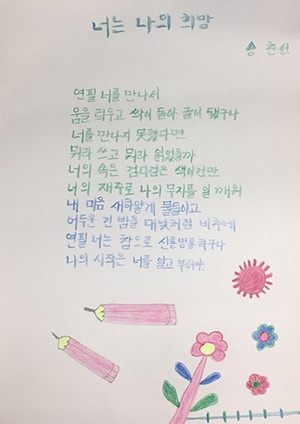 너는 나의 희망
송 춘선
연필 너를 만나서
움을 틔우고 싹이 돋아 글이 됐구나
너를 만나지 못했다면
뭐라 쓰고 뭐라 읽었을까
너의 속은 검디검은 색이건만
너의 재주로 나의 무지를 일깨워
내 마음 새하얗게 물들이고
어두운 긴 밤을 대낮처럼 비추네
연필 너는 참으로 신통방통하구나
나의 시작은 너를 알고 부터야